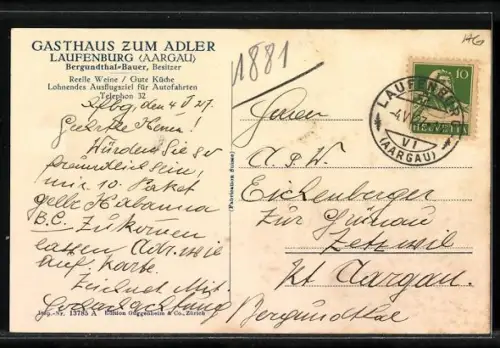 GASTHAUS ZUM ADLER
LAUFENBURG (AARGAU)
Bergundthal-Bauer, Besitzer
Reelle Weine / Gute Küche
Lohnendes Ausflugsziel für Autofahrten
Telephon 32
Lfbg, den 4. 27.
Geehrte Herren!
Würden Sie so
freundlich sein,
mir 10. Paket
gelbe Habanna
B.C. Zukomen
lassen Adr. wie
auf Karte.
Zeichnet Mit.
Hochachtung
Bergundthal
Imp.-Nr. 13785 A Edition Guggenheim & Co., Zürich
(Fabrication Suisse)
1881
HG
10
HELVETIA
LAUFENBURG
(AARGAU)
VI
Herren
A & W.
Eichenberger
Zur Grünau
Zetzwil
Kt Aargau.